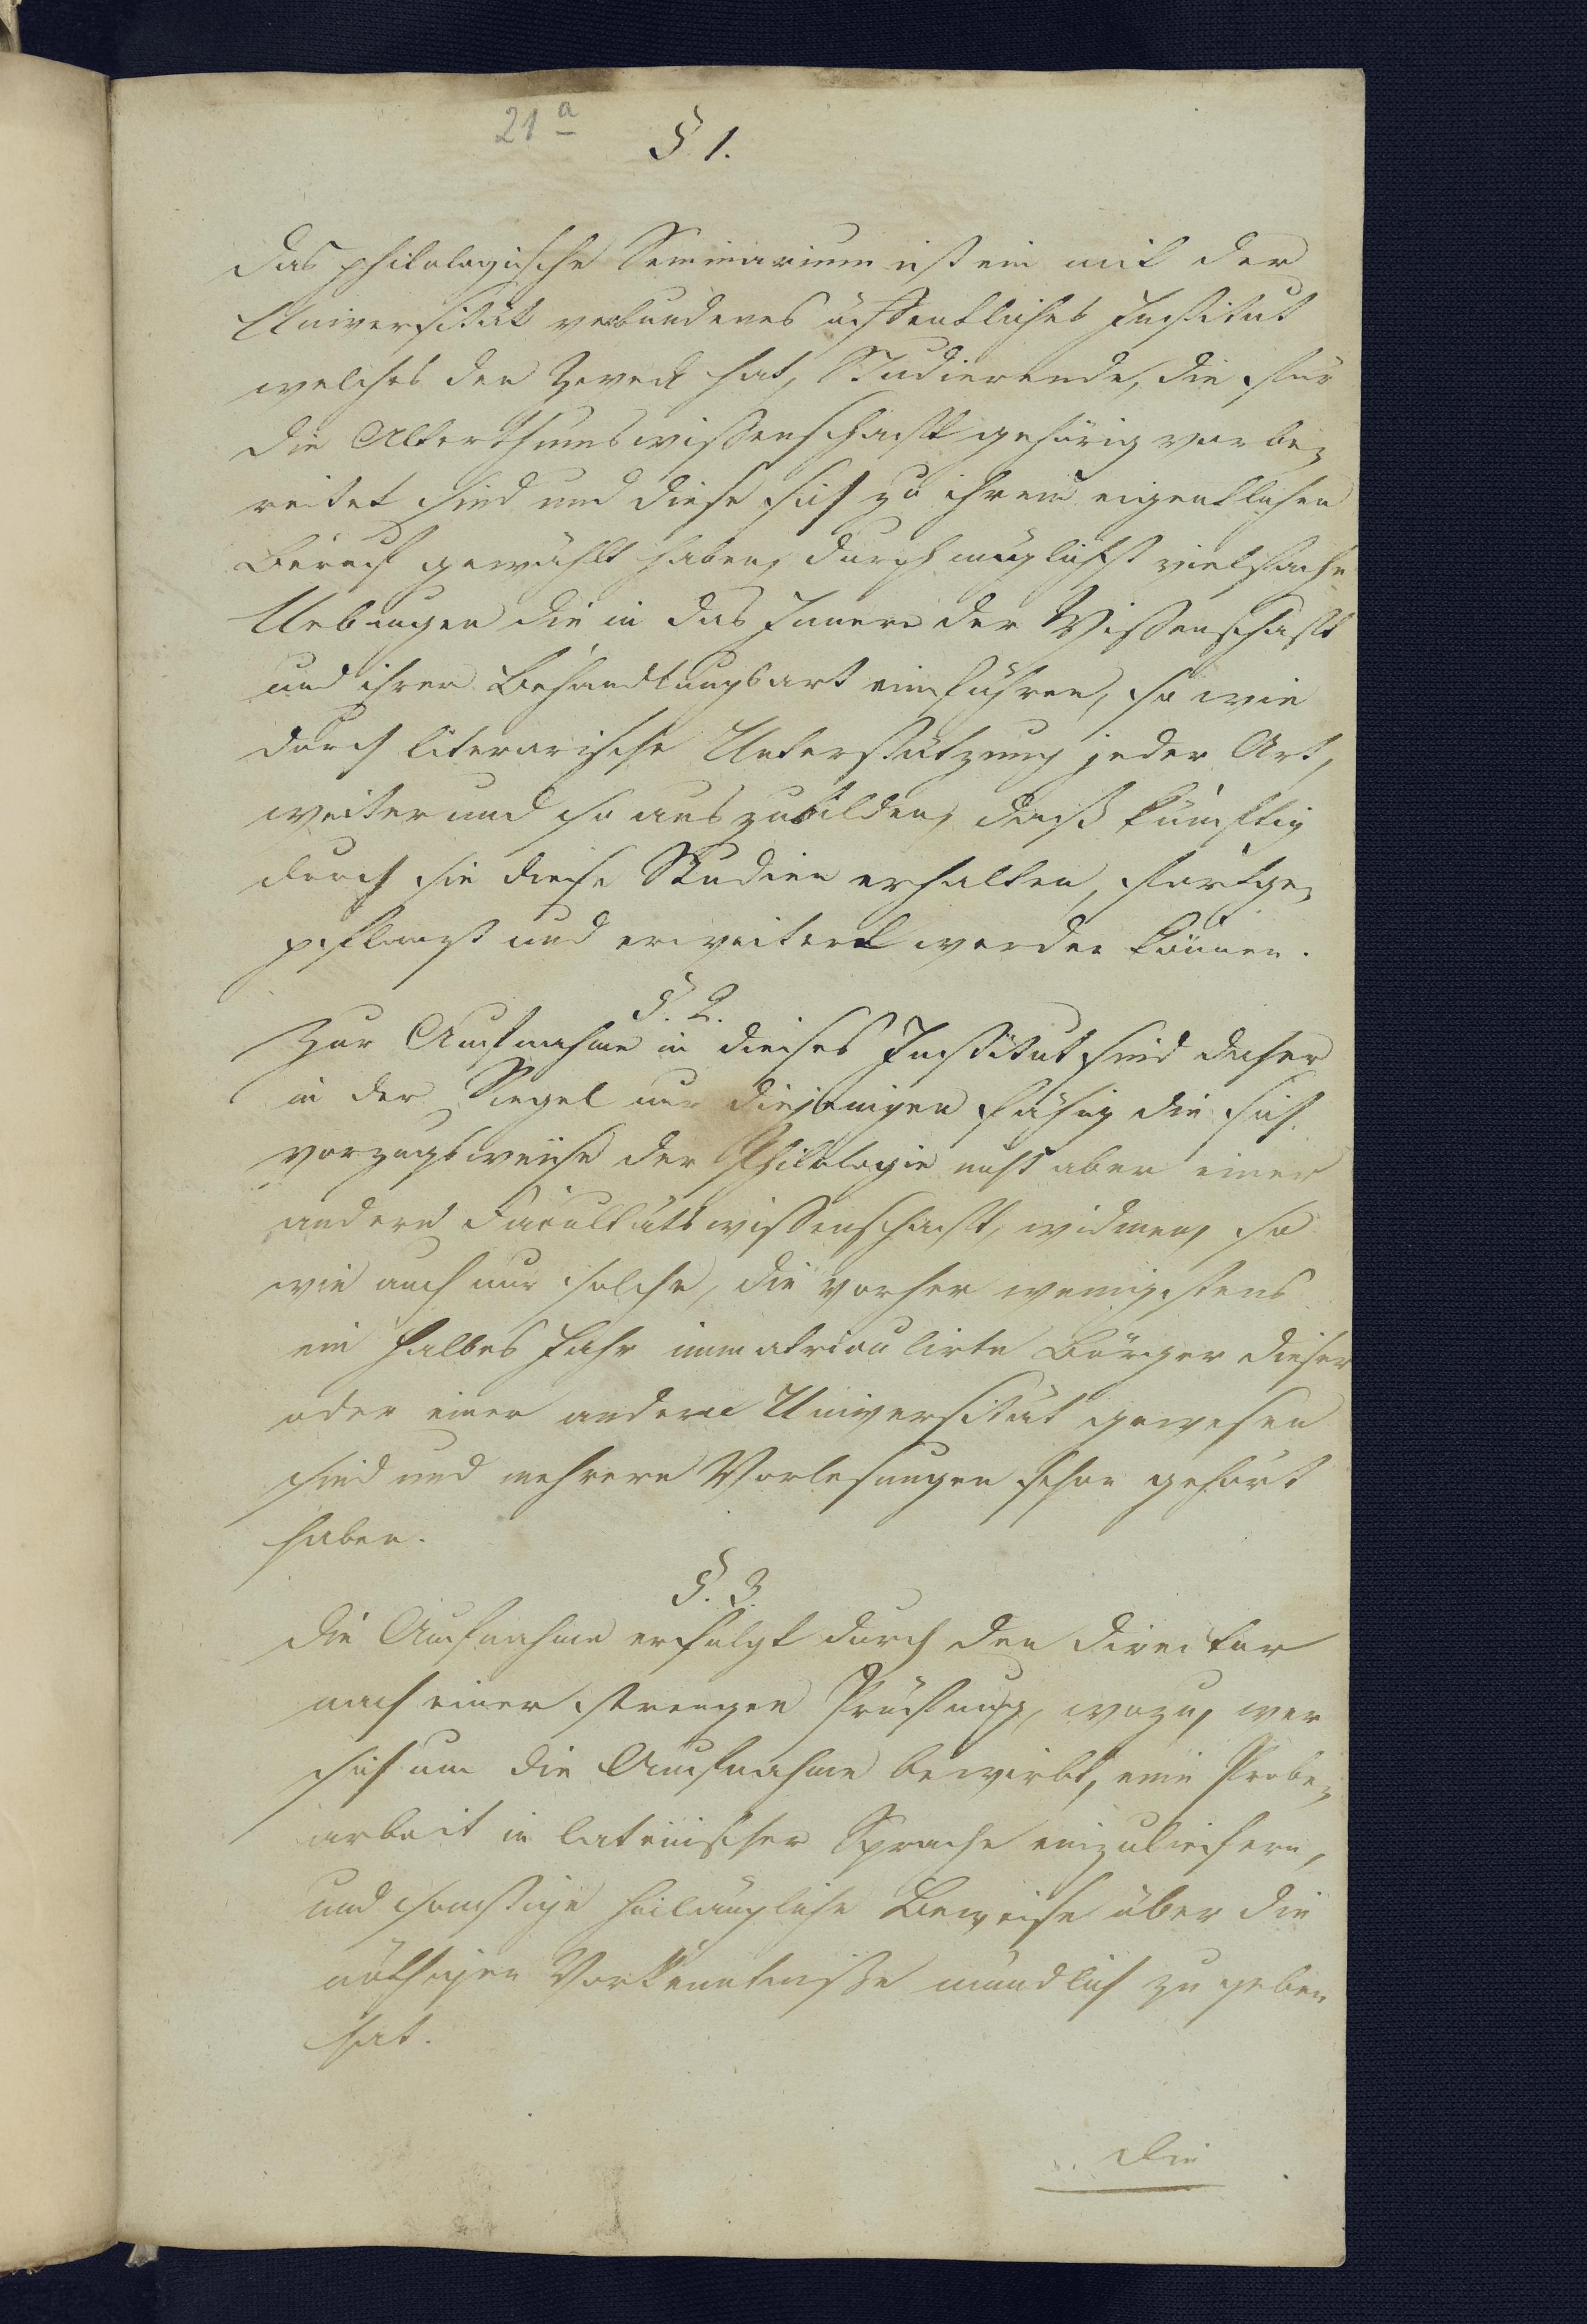 21a
§ 1.
Das philologische Seminarium ist ein mit der
Universität verbundenes öffentliches Institut
welches den Zweck hat, Studierende, die für
die Alterthumswissenschaft gehörig vorbe-
reitet sind und diese sich zu ihrem eigentlichen
Beruf gewählt haben, durch möglichst vielfache
Uebungen die in das Innere der Wissenschaft
und ihrer Behandlungsart einführen, so wie
durch literarische Unterstützung jeder Art,
weiter und so auszubilden, daß künftig
durch sie diese Studien erhalten, fortge-
pflanzt und erweitert werden können.
§. 2.
Zur Aufnahme in dieses Institut sind daher
in der Regel nur diejenigen fähig die sich
vorzugsweise der Philologie nicht aber einer
andern Facultätswissenschaft, widmen, so
wie auch nur solche, die vorher wenigstens
ein halbes Jahr immatriculirte Bürger dieser
oder einer andern Universität gewesen
sind und mehrere Vorlesungen schon gehört
haben.
§. 3.
Die Aufnahme erfolgt durch den Director
nach einer strengen Prüfung, wozu, wer
sich um die Aufnahme bewirbt, eine Probe-
arbeit in lateinischer Sprache einzuliefern,
und sonstige hinlängliche Beweise über die
nöthigen Vorkenntnisse mündlich zu geben
hat.
Die